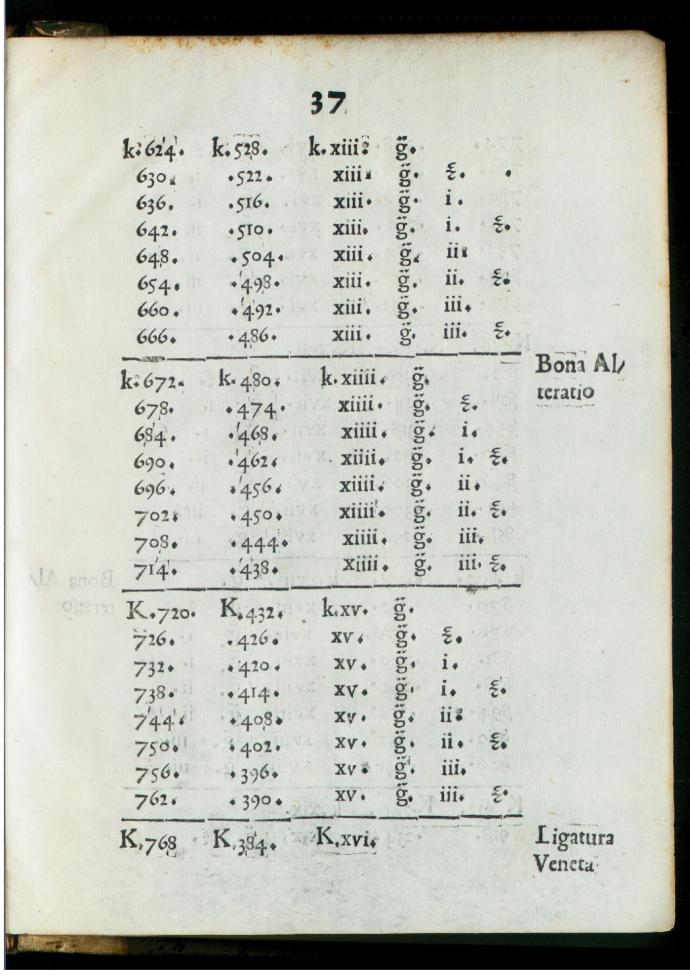 37
k.624. k.528. k.xiii. g̈.
630. .522. xiii. g̈. ξ. .
636. .516. xiii. g̈. i.
642. .510. xiii. g̈. i. ξ.
648. .504. xiii. g̈. ii.
654. .498. xiii. g̈. ii. ξ.
660. .492. xiii. g̈. iii.
666. .486. xiii. g̈. iii. ξ.
Bona Al/
teratio
k.672. k.480. k.xiiii. g̈.
678. .474. xiiii. g̈. ξ.
684. .468. xiiii. g̈. i.
690. .462. xiiii. g̈. i. ξ.
696. .456. xiiii. g̈. ii.
702. .450. xiiii. g̈. ii. ξ.
708. .444. xiiii. g̈. iii.
714. .438. xiiii. g̈. iii. ξ.
K.720. K.432. k.xv. g̈.
726. .426. xv. g̈. ξ.
732. .420. xv. g̈. i.
738. .414. xv. g̈. i. ξ.
744. .408. xv. g̈. ii.
750. .402. xv. g̈. ii. ξ.
756. .396. xv. g̈. iii.
762. .390. xv. g̈. iii. ξ.
K.768 K.384. K.xvi.
Ligatura
Veneta